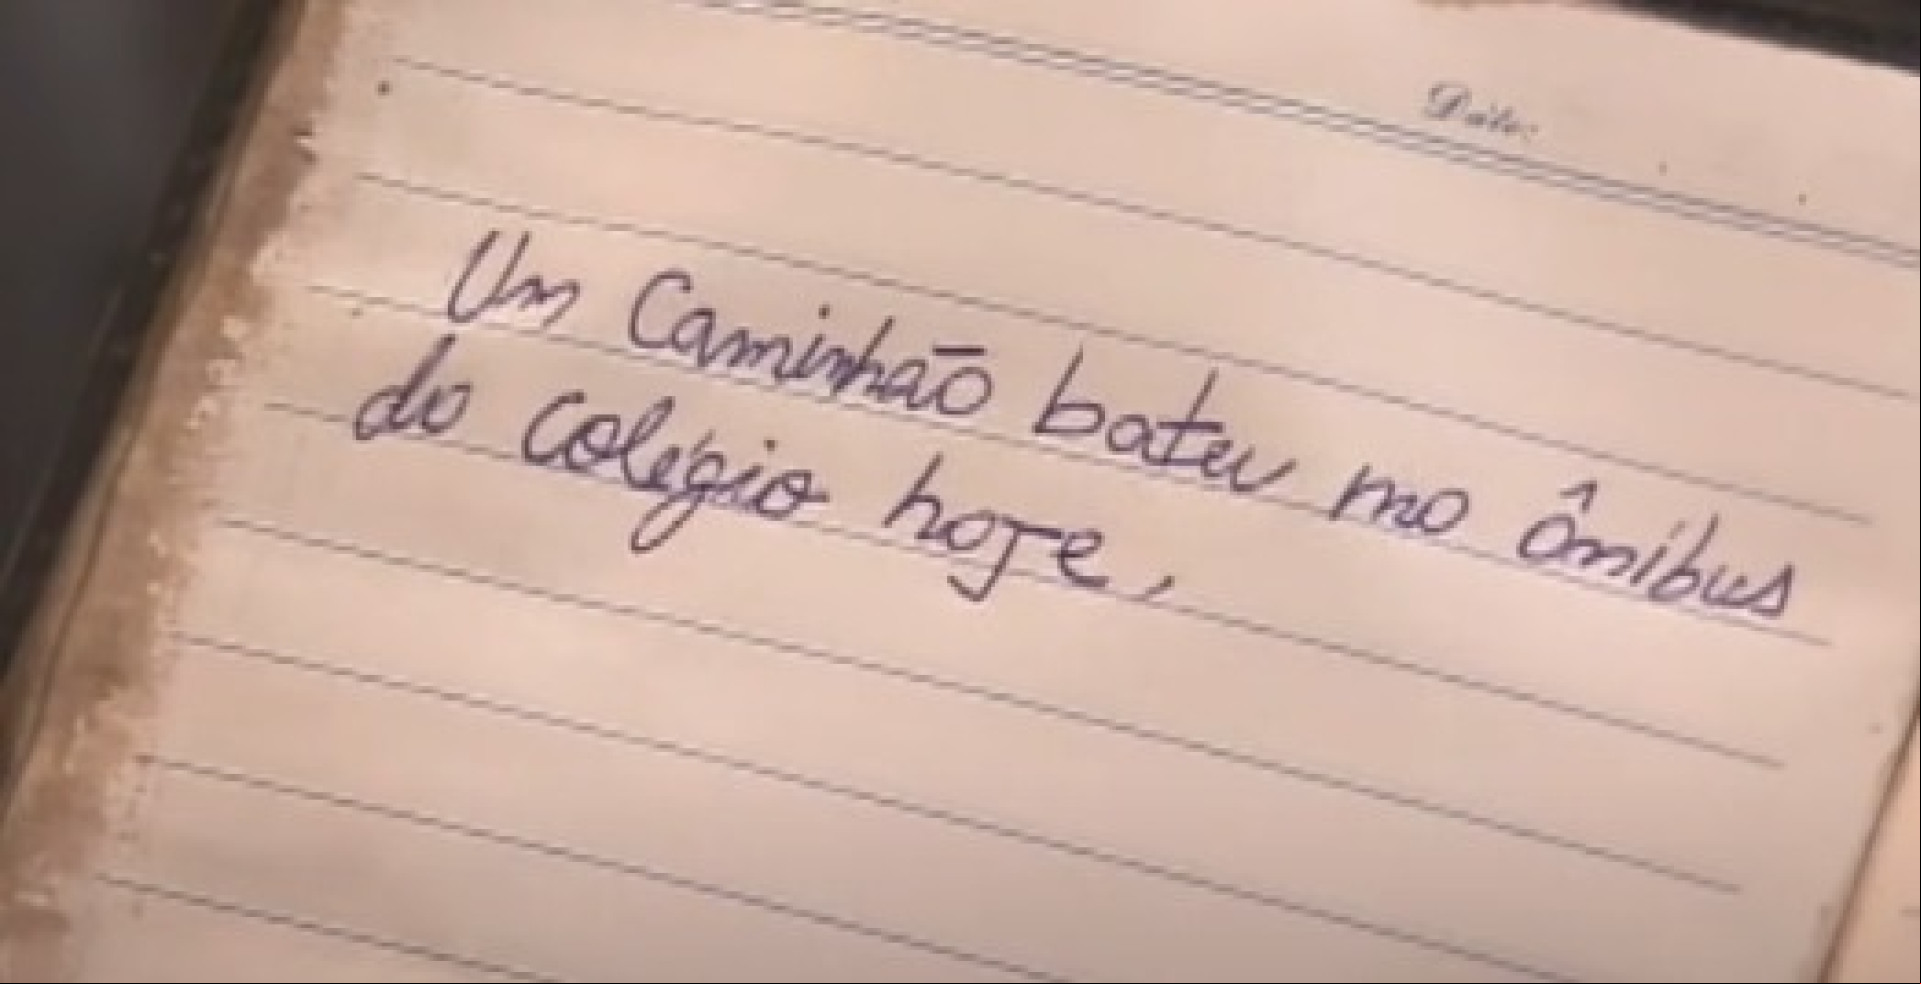 Date:
Um Caminhão bateu no ônibus
do colégio hoje,